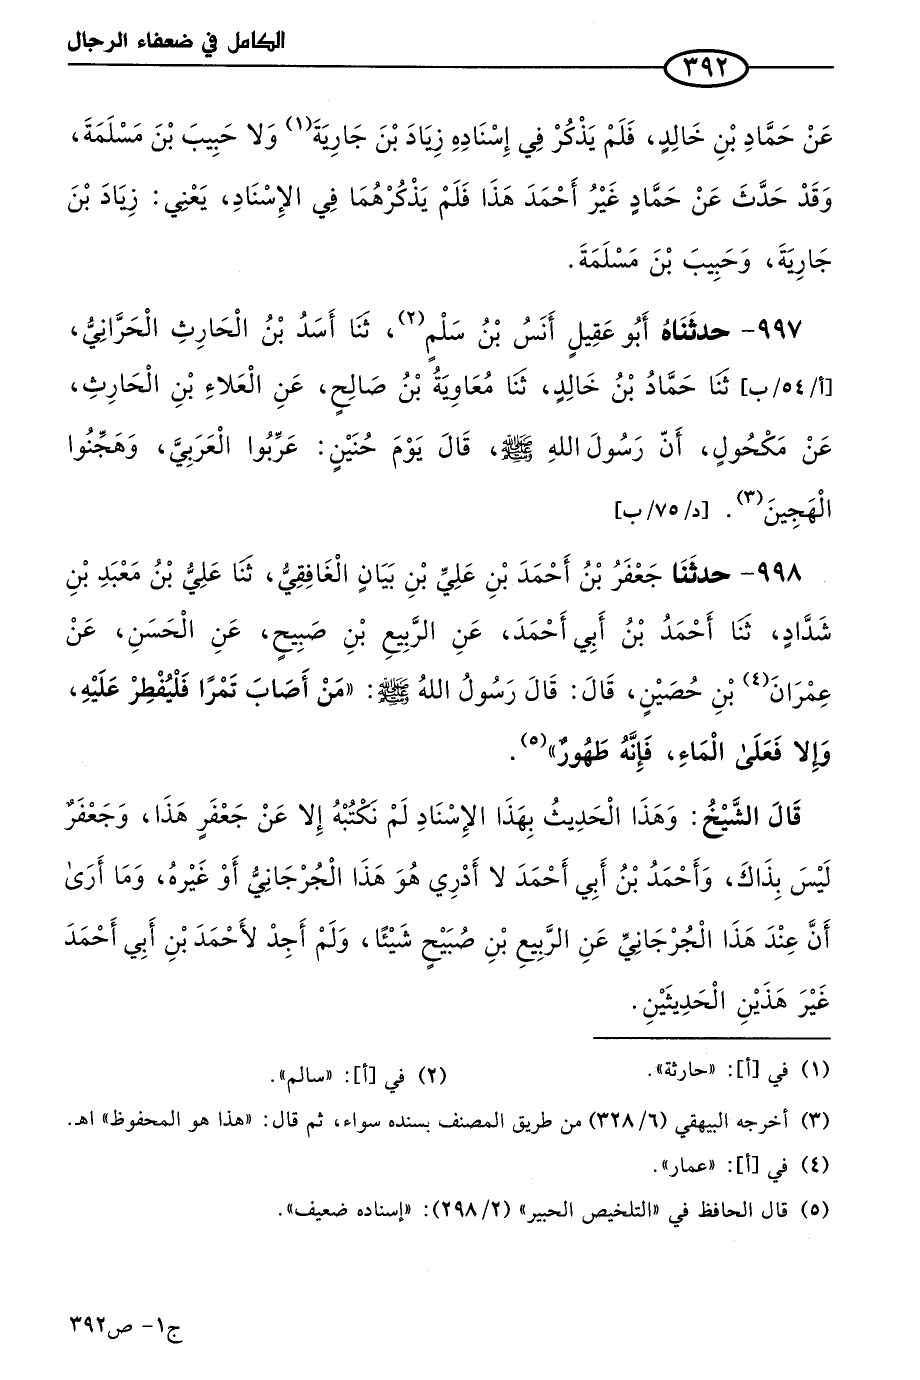 الكامل في ضعفاء الرجال
٣٩٢
عَنْ حَمَّادِ بْنِ خَالِدٍ، فَلَمْ يَذْكُرْ فِي إِسْنَادِهِ زِيَادَ بْنَ جَارِيَةَ(١) وَلا حَبِيبَ بْنَ مَسْلَمَةَ،
وَقَدْ حَدَّثَ عَنْ حَمَّادٍ غَيْرُ أَحْمَدَ هَذَا فَلَمْ يَذْكُرْهُمَا فِي الإِسْنَادِ، يَعْنِي: زِيَادَ بْنَ
جَارِيَةَ، وَحَبِيبَ بْنَ مَسْلَمَةَ.
٩٩٧- حدثَنَاهُ أَبُو عَقِيلٍ أَنَسُ بْنُ سَلْمٍ(٢)، ثَنَا أَسَدُ بْنُ الْحَارِثِ الْحَرَّانِيُّ،
[أ/٥٤/ب] ثَنَا حَمَّادُ بْنُ خَالِدٍ، ثَنَا مُعَاوِيَةُ بْنُ صَالِحٍ، عَنِ الْعَلاءِ بْنِ الْحَارِثِ،
عَنْ مَكْحُولٍ، أَنّ رَسُولَ اللهِ ﷺ، قَالَ يَوْمَ حُنَيْنٍ: عَرِّبُوا الْعَرَبِيَّ، وَهَجِّنُوا
الْهَجِينَ(٣). [د/٧٥/ب]
٩٩٨- حدثَنَا جَعْفَرُ بْنُ أَحْمَدَ بْنِ عَلِيِّ بْنِ بَيَانٍ الْغَافِقِيُّ، ثَنَا عَلِيُّ بْنُ مَعْبَدِ بْنِ
شَدَّادٍ، ثَنَا أَحْمَدُ بْنُ أَبِي أَحْمَدَ، عَنِ الرَّبِيعِ بْنِ صَبِيحٍ، عَنِ الْحَسَنِ، عَنْ
عِمْرَانَ(٤) بْنِ حُصَيْنٍ، قَالَ: قَالَ رَسُولُ اللهُ ﷺ: «مَنْ أَصَابَ تَمْرًا فَلْيُفْطِرْ عَلَيْهِ،
وَإِلا فَعَلَىٰ الْمَاءِ، فَإِنَّهُ طَهُورٌ»(٥).
قَالَ الشَّيْخُ: وَهَذَا الْحَدِيثُ بِهَذَا الإِسْنَادِ لَمْ نَكْتُبْهُ إِلا عَنْ جَعْفَرٍ هَذَا، وَجَعْفَرٌ
لَيْسَ بِذَاكَ، وَأَحْمَدُ بْنُ أَبِي أَحْمَدَ لا أَدْرِي هُوَ هَذَا الْجُرْجَانِيُّ أَوْ غَيْرهُ، وَمَا أَرَىٰ
أَنَّ عِنْدَ هَذَا الْجُرْجَانِيِّ عَنِ الرَّبِيعِ بْنِ صُبَيْحٍ شَيْئًا، وَلَمْ أَجِدْ لأَحْمَدَ بْنِ أَبِي أَحْمَدَ
غَيْرَ هَذَيْنِ الْحَدِيثَيْنِ.
(١) في [أ]: «حارثة». (٢) في [أ]: «سالم».
(٣) أخرجه البيهقي (٣٢٨/٦) من طريق المصنف بسنده سواء، ثم قال: «هذا هو المحفوظ» اهـ.
(٤) في [أ]: «عمار».
(٥) قال الحافظ في «التلخيص الحبير» (٢٩٨/٢): «إسناده ضعيف».
ج١- ص٣٩٢